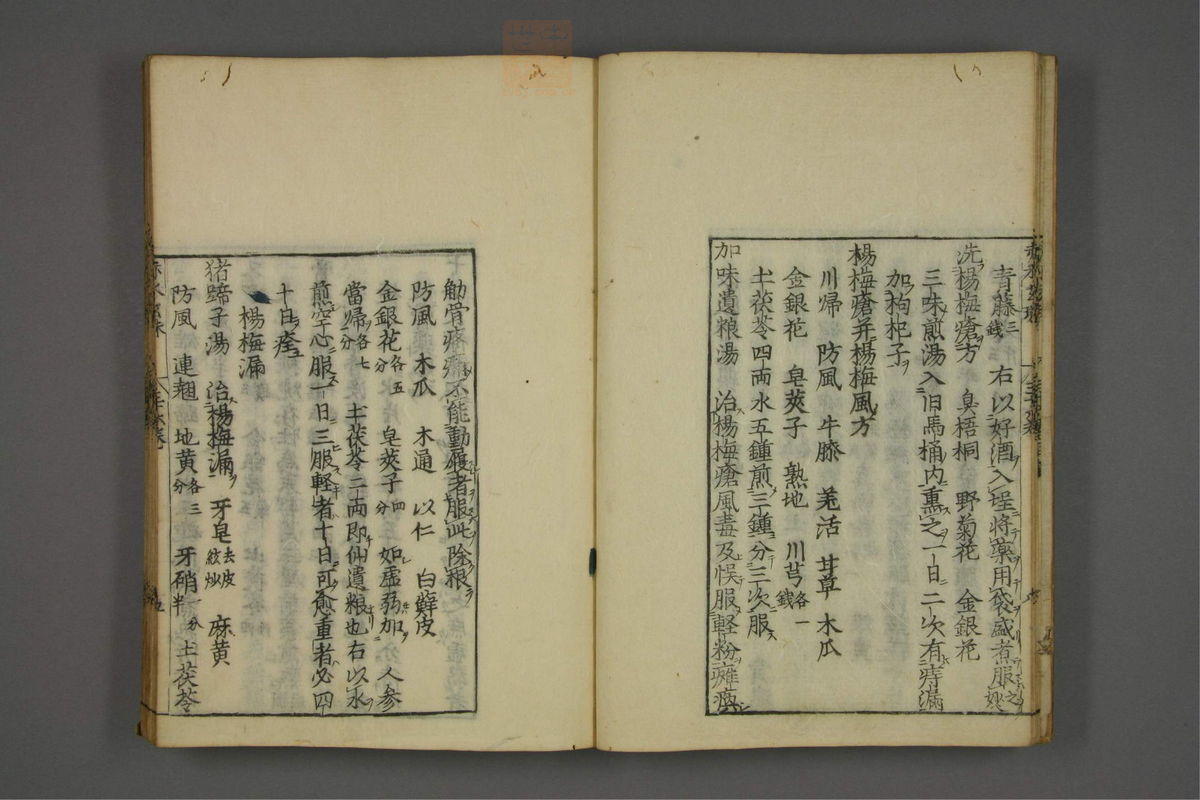 青藤三錢　右以好酒入埕將藥用袋盛煮服之妙
洗楊梅瘡方　臭梧桐　野菊花　金銀花
三味煎湯入旧馬桶内熏之一日二次有痔漏
加枸杞子
楊梅瘡并楊梅風方
川帰　防風　牛膝　羌活　甘草　木瓜
金銀花　皂莢子　熟地　川芎各一錢
土茯苓四両水五鍾煎三鍾分三次服
加味遺粮湯　治楊梅瘡風毒及悞服軽粉癱瘓
觔骨疼痛不能動履者服此除根
防風　木瓜　木通　苡仁　白蘚皮
金銀花各五分　皂莢子四分　如虚弱加　人参
當帰各七分　土茯苓二両即仙遺粮也右以水
煎空心服一日三服軽者十日可愈重者必四
十日痊
楊梅漏
猪蹄子湯　治楊梅漏　牙皂去皮絃炒　麻黄
防風　連翹　地黄各三分　牙硝一分半　土茯苓